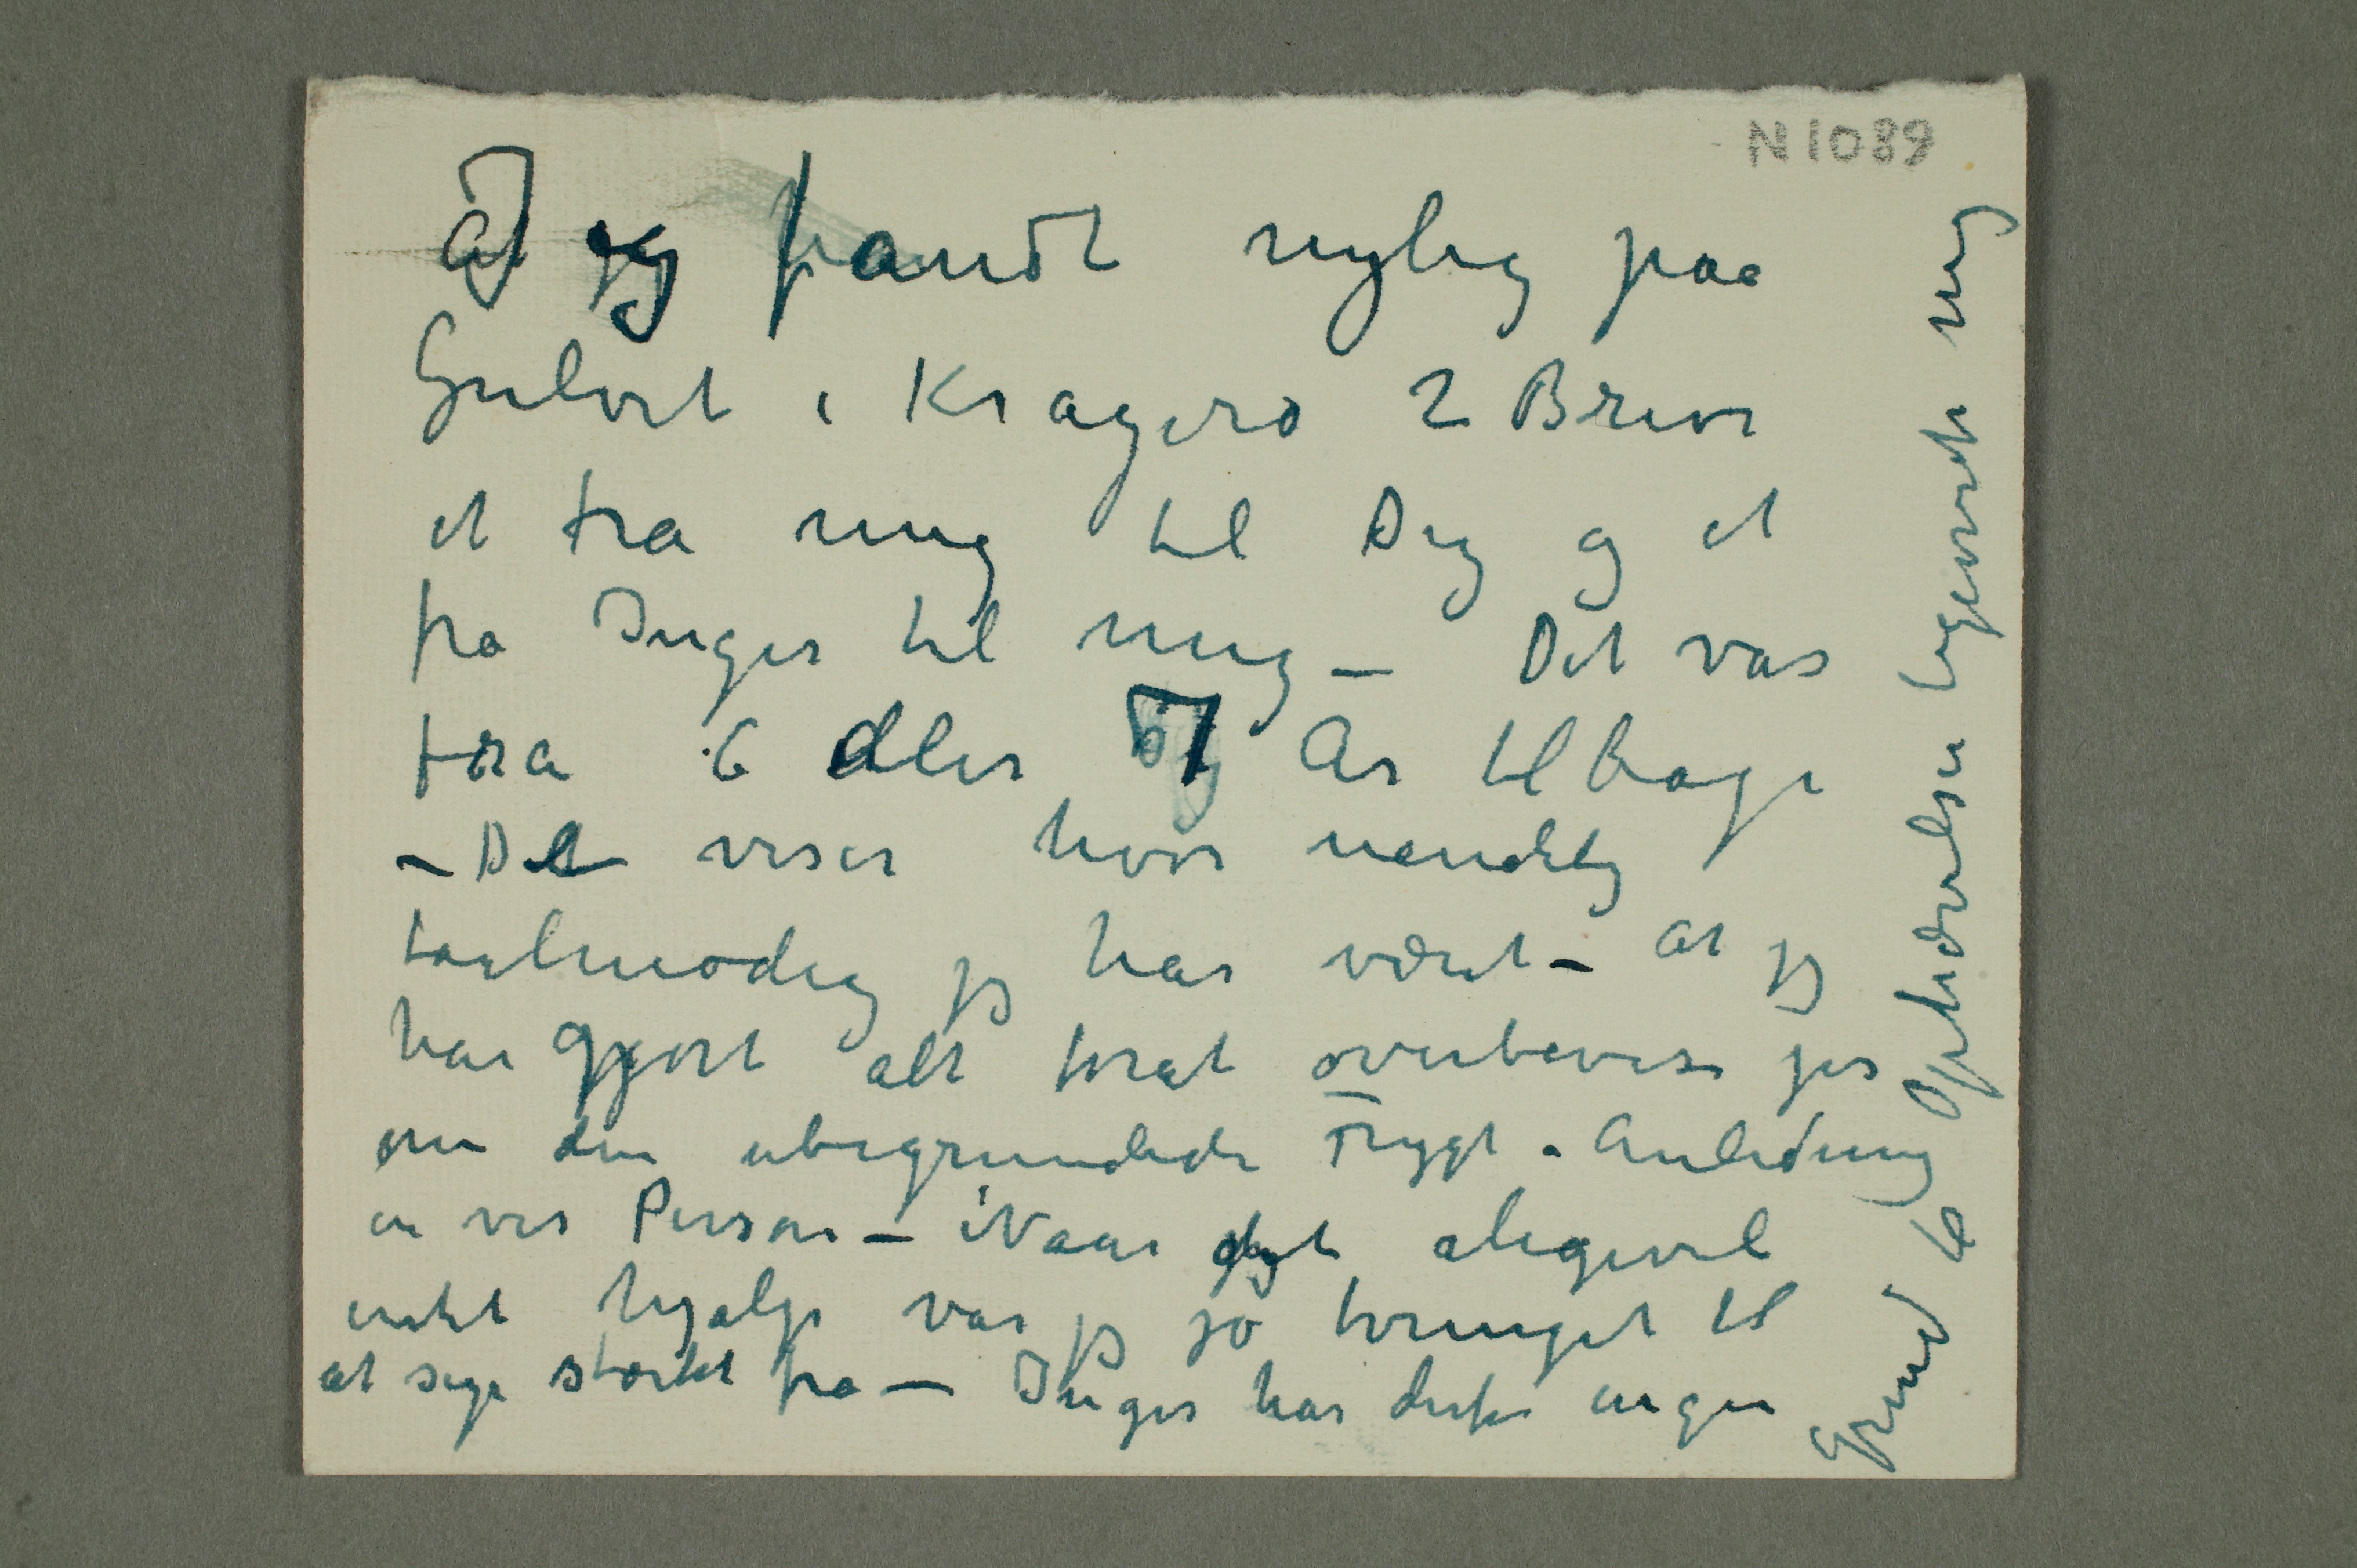 N 1089
Jeg fandt nylig paa
Gulvet i Kragerø 2 Breve
et fra mig til Dig og et
fra Inger til mig – Det var
fra 6 eller 7 Ar tilbage
– Det viser hvor uendelig
taalmodig jeg har været – at jeg
har gjort alt forat overbevise jer
om den ubegrundede Frygt. Anledning
en vis Person – Naar det aligevel
intet hjalp var jeg jo tvunget til
at sige stærkt fra – Inger har derfor ingen
Grund til Ophidselse ligeoverfor mig